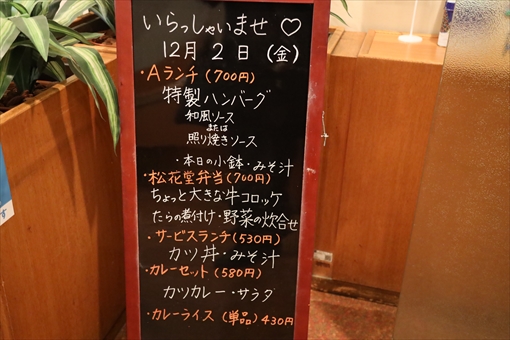 いらっしゃいませ ♡
12月 2日 (金)
・Aランチ(700円)
特製ハンバーグ
和風ソース
または
照り焼きソース
・本日の小鉢・みそ汁
・松花堂弁当(700円)
ちょっと大きな牛コロッケ
たらの煮付け・野菜の炊合せ
・サービスランチ(530円)
カツ丼・みそ汁
・カレーセット(580円)
カツカレー・サラダ
・カレーライス(単品)430円